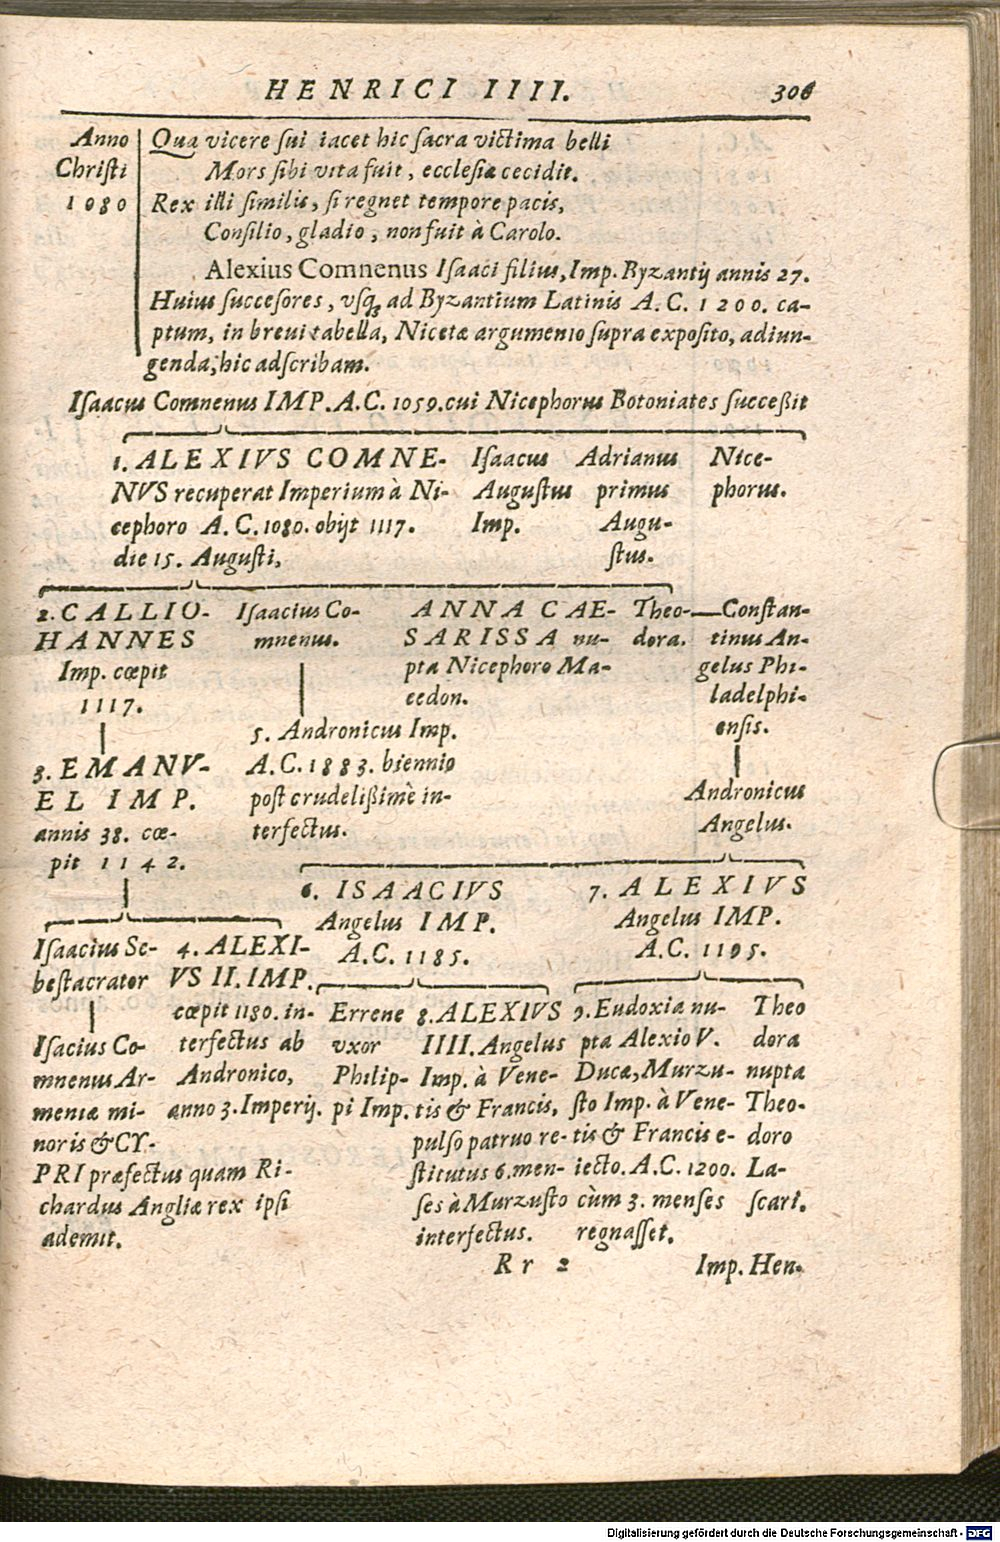 HENRICI IIII. 306
Anno Christi 1080
Qua vicere sui iacet hic sacra victima belli
Mors sibi vita fuit, ecclesiæ cecidit.
Rex illi similis, si regnet tempore pacis,
Consilio, gladio, non fuit à Carolo.
Alexius Comnenus Isaaci filius, Imp. Byzantij annis 27.
Huius succesores, vsq; ad Byzantium Latinis A. C. 1200. ca-
ptum, in breui tabella, Nicetæ argumento supra exposito, adiun-
genda, hic adscribam.
Isaacus Comnenus IMP. A.C. 1059. cui Nicephorus Botoniates successit
1. ALEXIVS COMNE-
NVS recuperat Imperium à Ni-
cephoro A. C. 1080. obijt 1117.
die 15. Augusti,
Isaacus
Augustus
Imp.
Adrianus
primus
Augu-
stus.
Nice-
phorus.
2. CALLIO-
HANNES
Imp. cœpit
1117.
Isaacius Co-
mnenus.
ANNA CAE-
SARISSA nu-
pta Nicephoro Ma-
cedon.
Theo-
dora.
Constan-
tinus An-
gelus Phi-
ladelphi-
ensis.
3. EMANV-
EL IMP.
annis 38. cœ-
pit 1142.
5. Andronicus Imp.
A.C. 1883. biennio
post crudelißimè in-
terfectus.
Andronicus
Angelus.
6. ISAACIVS
Angelus IMP.
A.C. 1185.
7. ALEXIVS
Angelus IMP.
A.C. 1195.
Isaacius Se-
bestacrator
4. ALEXI-
VS II. IMP.
cœpit 1180. in-
terfectus ab
Andronico,
anno 3. Imperij.
Isacius Co-
mnenus Ar-
meniæ mi-
noris & CY-
PRI præfectus quam Ri-
chardus Angliæ rex ipsi
ademit.
Errene
vxor
Philip-
pi Imp.
8. ALEXIVS
IIII. Angelus
Imp. à Vene-
tis & Francis,
pulso patruo re-
stitutus 6. men-
ses à Murzusto
interfectus.
9. Eudoxia nu-
pta Alexio V.
Ducæ, Murzu-
sto Imp. à Vene-
tis & Francis e-
iecto. A.C. 1200.
cùm 3. menses
regnasset.
Theo
dora
nupta
Theo-
doro
La-
scari.
Rr 2 Imp. Hen-
Digitalisierung gefördert durch die Deutsche Forschungsgemeinschaft - DFG